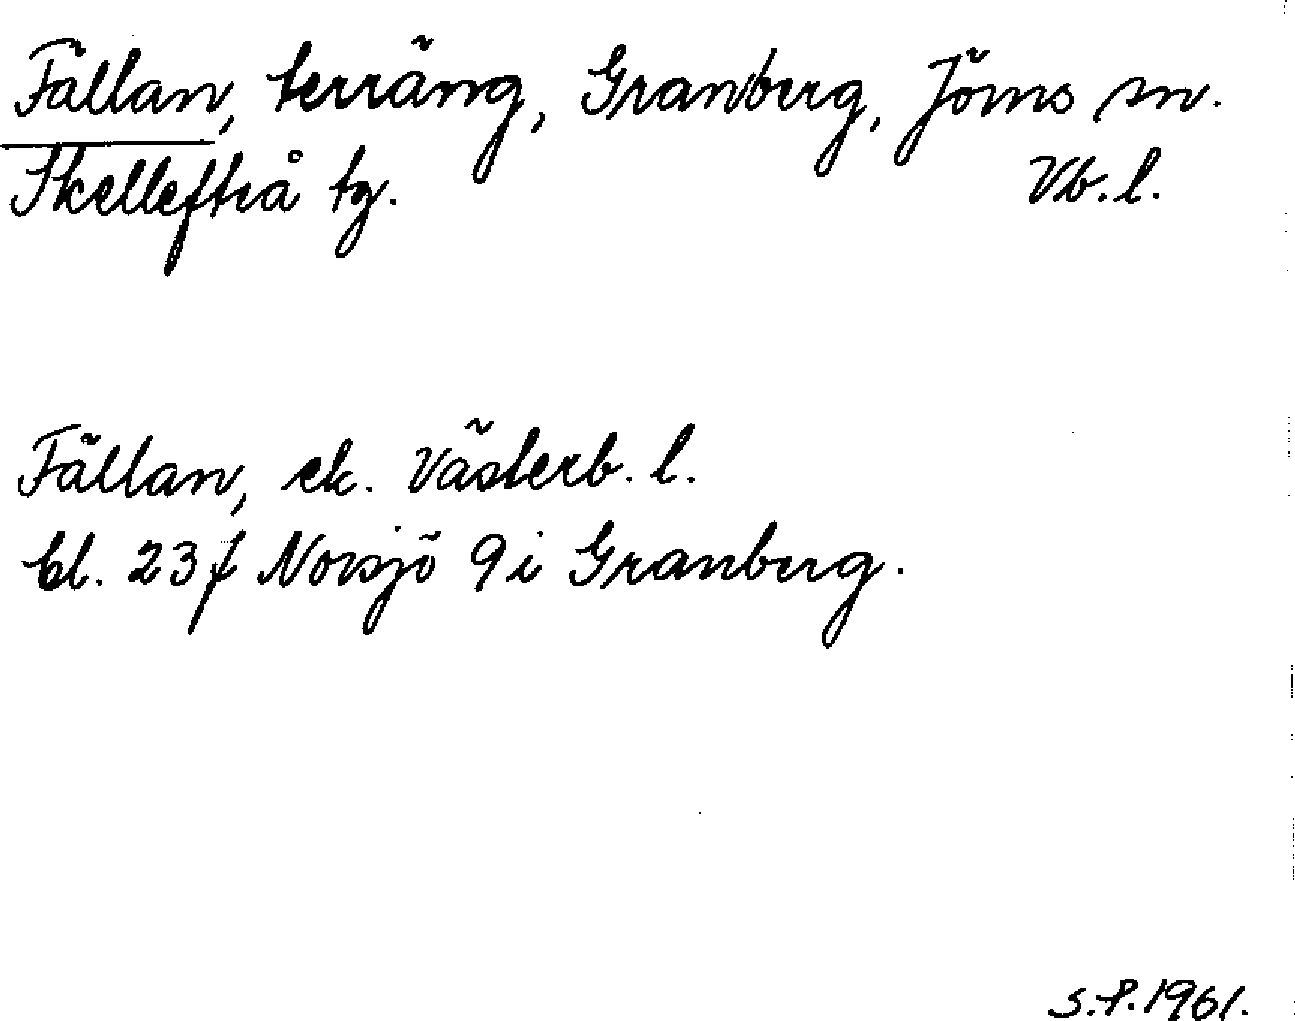 Fällan, terräng, Granberg, Jörns sn.
Skellefteå tg. Vb. l.
Fällan, ek. Västerb. l.
bl. 23 f Norsjö 9 i Granberg.
S.P. 1961.